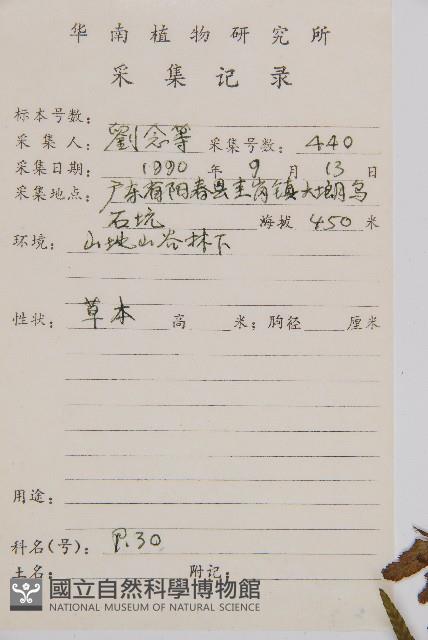 华南植物研究所
采集记录
标本号数：
采集人：劉念等 采集号数：440
采集日期：1990年9月13日
采集地点：广东省阳春县圭岗镇大坳乌
石坑 海拔450米
环境：山地山谷林下
性状：草本 高 米；胸径 厘米
用途：
科名(号)：P.30
土名： 附记：
國立自然科學博物館
NATIONAL MUSEUM OF NATURAL SCIENCE